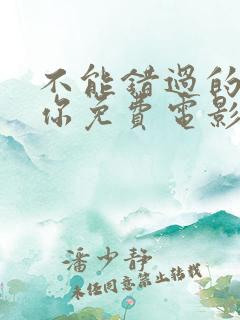 不能错過的
你免費電影
潘少静
未经同意禁止转载